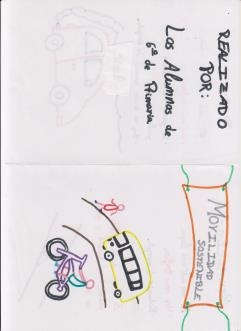 REALIZADO
POR:
Los Alumnos de
6º de Primaria
MOVILIDAD
SOSTENIBLE